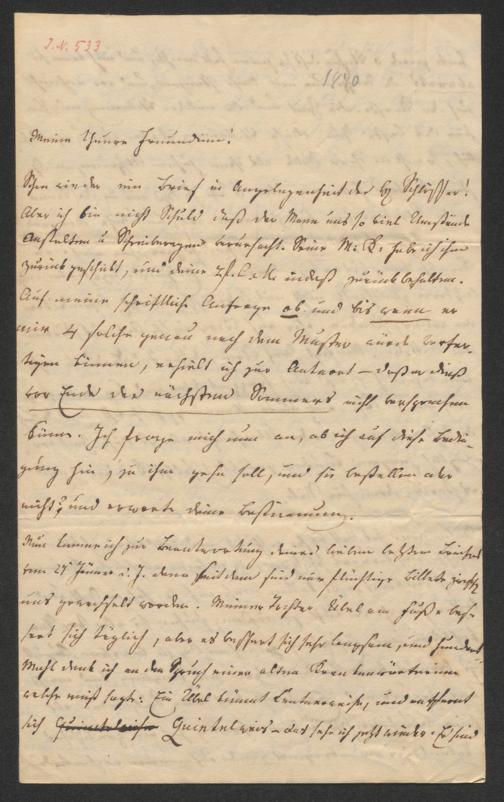 J. N. 533
1840
Meine theure Freundinn!
Schon wieder ein Brief in Angelegenheit der Schlösser!
Aber ich bin nicht Schuld daß der Mann uns so viel Umstände
Anstalten u Schreibereyen verursacht. Seine M: K: hab ich ihm
zurük geschikt, und deine indeß zurükbehalten.
Auf meine schriftliche Anfrage ob und bis wann er
mir 4 solche genau nach dem Muster würde verfer-
tigen können, erhielt ich zur Antwort – daß er dieß
vor Ende des nächsten Sommers nicht versprechen
könne. Ich frage mich nun an, ob ich auf diese Bedin-
gung hin, zu ihm gehn soll, und sie bestellen oder
nicht? und erwarte deine Bestimmung.
Nun komme ich zur Beantwortung deines lieben letzten Briefes
vom 27 Jänner d. J. denn seitdem sind nur flüchtige Billete zwisch
uns gewechselt worden. Meiner Tochter Übel am Fuße bes-
sert sich täglich, aber es bessert sich sehr langsam, und hundert
Mahl denk ich an den Spruch einer alten Krankenwärterinn
welche mich sagte: Ein Übel kömmt Centnerweise, und entfernt
sich Quintelweis – das sehe ich jetzt wieder. Es sind